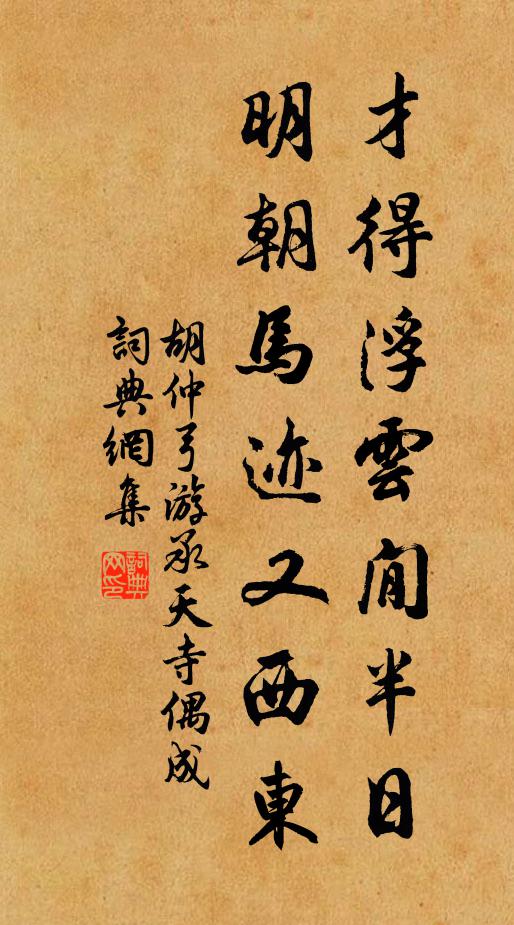 才得浮雲閒半日
明朝馬迹又西東
胡仲弓游承天寺偶成
詞典網集
詞典网印